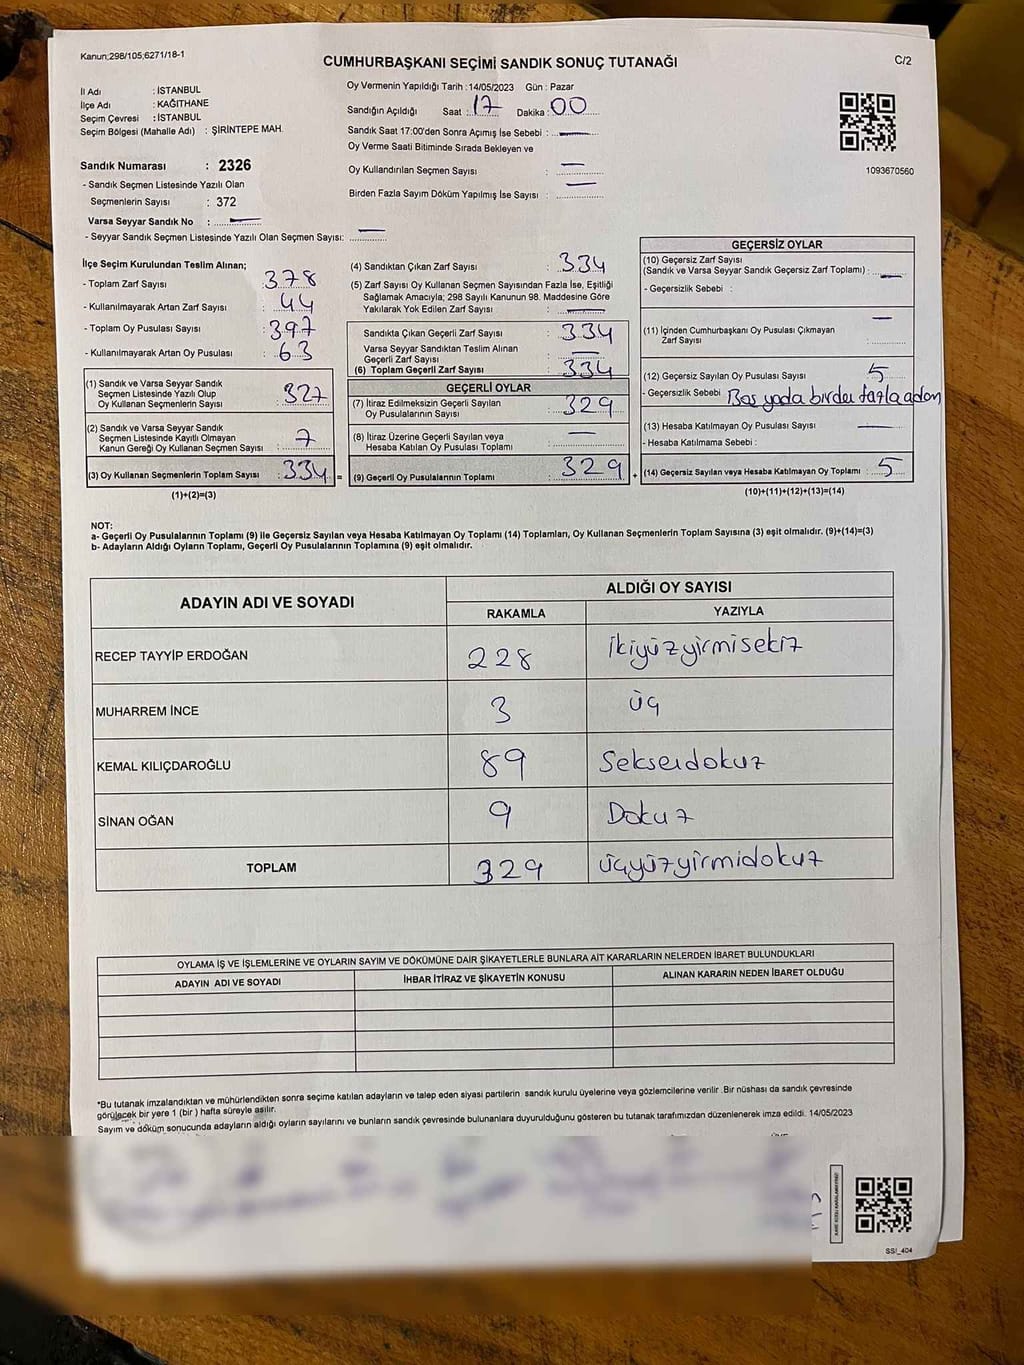 Kanun;298/105;6271/18-1
CUMHURBAŞKANI SEÇİMİ SANDIK SONUÇ TUTANAĞI
C/2
İl Adı : İSTANBUL
İlçe Adı : KAĞITHANE
Seçim Çevresi : İSTANBUL
Seçim Bölgesi (Mahalle Adı) : ŞİRİNTEPE MAH.
Sandık Numarası : 2326
- Sandık Seçmen Listesinde Yazılı Olan
Seçmenlerin Sayısı : 372
Varsa Seyyar Sandık No : —
- Seyyar Sandık Seçmen Listesinde Yazılı Olan Seçmen Sayısı: —
Oy Vermenin Yapıldığı Tarih : 14/05/2023 Gün : Pazar
Sandığın Açıldığı Saat : 17 Dakika : 00
Sandık Saat 17:00'den Sonra Açımış İse Sebebi : —
Oy Verme Saati Bitiminde Sırada Bekleyen ve
Oy Kullandırılan Seçmen Sayısı : —
Birden Fazla Sayım Döküm Yapılmış İse Sayısı : —
1093670560
İlçe Seçim Kurulundan Teslim Alınan;
- Toplam Zarf Sayısı : 378
- Kullanılmayarak Artan Zarf Sayısı : 44
- Toplam Oy Pusulası Sayısı : 397
- Kullanılmayarak Artan Oy Pusulası : 63
(1) Sandık ve Varsa Seyyar Sandık
Seçmen Listesinde Yazılı Olup
Oy Kullanan Seçmenlerin Sayısı : 327
(2) Sandık ve Varsa Seyyar Sandık
Seçmen Listesinde Kayıtlı Olmayan
Kanun Gereği Oy Kullanan Seçmen Sayısı : 7
(3) Oy Kullanan Seçmenlerin Toplam Sayısı : 334 =
(1)+(2)=(3)
(4) Sandıktan Çıkan Zarf Sayısı : 334
(5) Zarf Sayısı Oy Kullanan Seçmen Sayısından Fazla İse, Eşitliği
Sağlamak Amacıyla; 298 Sayılı Kanunun 98. Maddesine Göre
Yakılarak Yok Edilen Zarf Sayısı : —
Sandıkta Çıkan Geçerli Zarf Sayısı : 334
Varsa Seyyar Sandıktan Teslim Alınan
Geçerli Zarf Sayısı : —
(6) Toplam Geçerli Zarf Sayısı : 334
GEÇERLİ OYLAR
(7) İtiraz Edilmeksizin Geçerli Sayılan
Oy Pusulalarının Sayısı : 329
(8) İtiraz Üzerine Geçerli Sayılan veya
Hesaba Katılan Oy Pusulası Toplamı : —
(9) Geçerli Oy Pusulalarının Toplamı : 329 +
GEÇERSİZ OYLAR
(10) Geçersiz Zarf Sayısı
(Sandık ve Varsa Seyyar Sandık Geçersiz Zarf Toplamı) : —
- Geçersizlik Sebebi :
(11) İçinden Cumhurbaşkanı Oy Pusulası Çıkmayan
Zarf Sayısı : —
(12) Geçersiz Sayılan Oy Pusulası Sayısı : 5
- Geçersizlik Sebebi : Boş yada birden fazla adam
(13) Hesaba Katılmayan Oy Pusulası Sayısı : —
- Hesaba Katılmama Sebebi :
(14) Geçersiz Sayılan veya Hesaba Katılmayan Oy Toplamı : 5
(10)+(11)+(12)+(13)=(14)
NOT:
a- Geçerli Oy Pusulalarının Toplamı (9) ile Geçersiz Sayılan veya Hesaba Katılmayan Oy Toplamı (14) Toplamları, Oy Kullanan Seçmenlerin Toplam Sayısına (3) eşit olmalıdır. (9)+(14)=(3)
b- Adayların Aldığı Oyların Toplamı, Geçerli Oy Pusulalarının Toplamına (9) eşit olmalıdır.
ADAYIN ADI VE SOYADI
ALDIĞI OY SAYISI
RAKAMLA YAZIYLA
RECEP TAYYİP ERDOĞAN 228 ikiyüzyirmisekiz
MUHARREM İNCE 3 üç
KEMAL KILIÇDAROĞLU 89 Seksendokuz
SİNAN OĞAN 9 Dokuz
TOPLAM 329 üçyüzyirmidokuz
OYLAMA İŞ VE İŞLEMLERİNE VE OYLARIN SAYIM VE DÖKÜMÜNE DAİR ŞİKAYETLERLE BUNLARA AİT KARARLARIN NELERDEN İBARET BULUNDUKLARI
ADAYIN ADI VE SOYADI İHBAR İTİRAZ VE ŞİKAYETİN KONUSU ALINAN KARARIN NEDEN İBARET OLDUĞU
*Bu tutanak imzalandıktan ve mühürlendikten sonra seçime katılan adayların ve talep eden siyasi partilerin sandık kurulu üyelerine veya gözlemcilerine verilir .Bir nüshası da sandık çevresinde
görülecek bir yere 1 (bir ) hafta süreyle asılır.
Sayım ve döküm sonucunda adayların aldığı oyların sayılarını ve bunların sandık çevresinde bulunanlara duyurulduğunu gösteren bu tutanak tarafımızdan düzenlenerek imza edildi. 14/05/2023
SSI_404